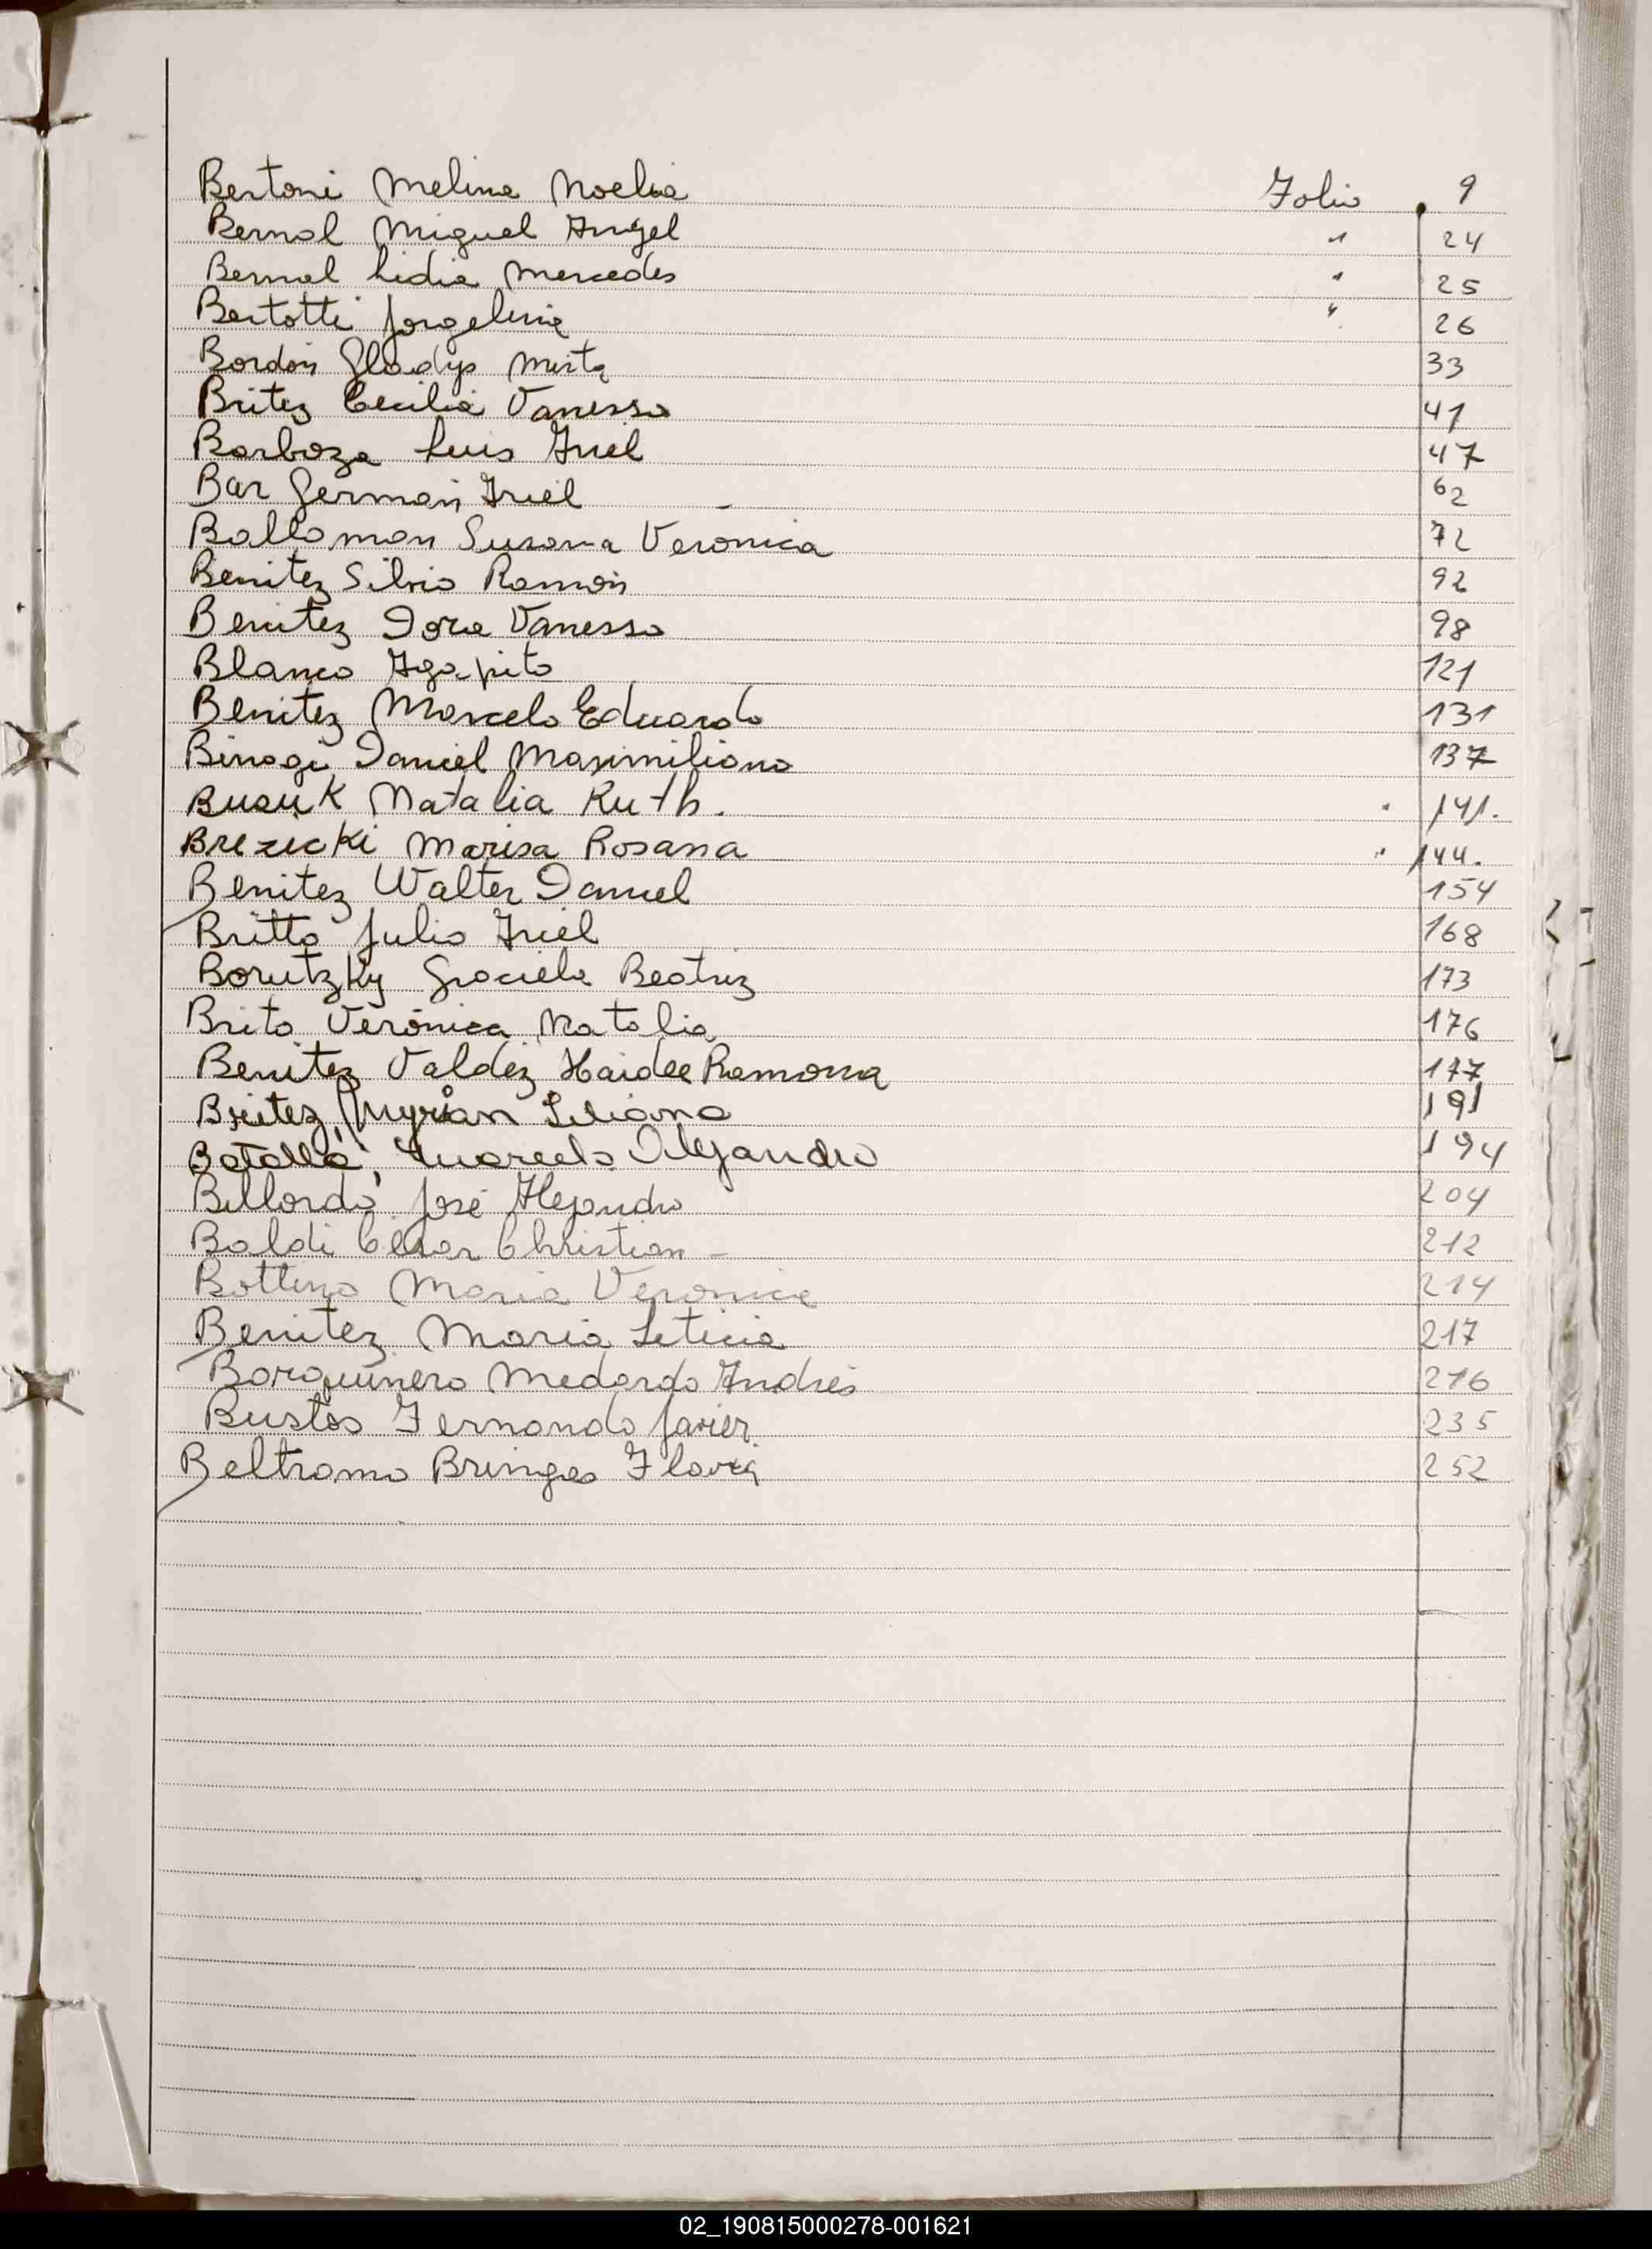 Bertoni Melina Noelia Folio 9
Bernal Miguel Angel " 24
Bernal Lidia Mercedes " 25
Bertotti Jorgelina " 26
Bordón Gladys Mirta 33
Britez Cecilia Vanessa 41
Barboza Luis Ariel 47
Bar Germán Ariel 62
Balloman Susana Verónica 72
Benitez Silvio Ramón 92
Benitez Dora Vanessa 98
Blanco Agapito 121
Benitez Marcelo Eduardo 131
Binagi Daniel Maximiliano 137
Busuk Natalia Ruth. " 141.
Brezicki Marisa Rosana " 144.
Benitez Walter Daniel 154
Britto Julio Ariel 168
Borutzky Graciela Beatriz 173
Brito Verónica Natalia 176
Benitez Valdéz Haidee Ramona 177
Britez, Myrian Liliana 191
Batalla, Marcelo Alejandro 194
Billordo José Alejandro 204
Baldi César Christian - 212
Bottino Maria Veronica 214
Benitez Maria Leticia 217
Borquinero Medardo Andrés 216
Bustos Fernando Javier. 235
Beltramo Bringas Flavia 252
02_190815000278-001621